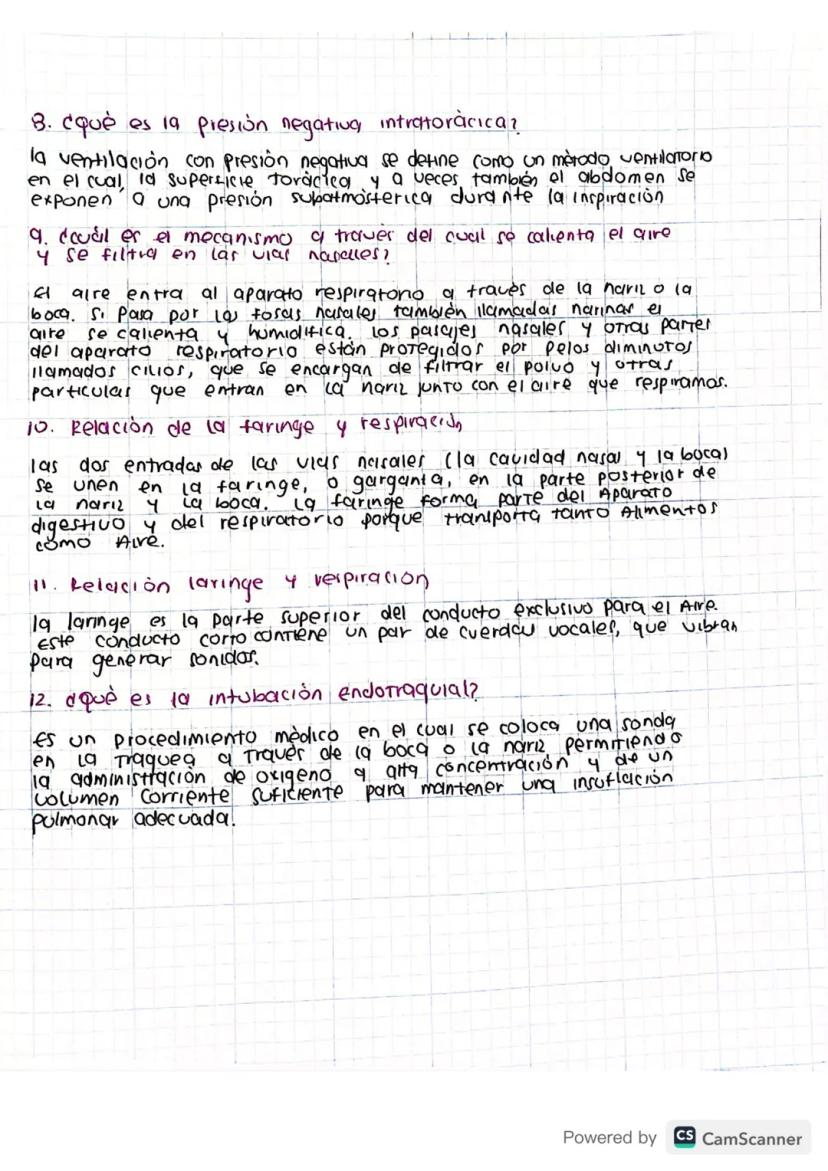 8. ¿què es la presiòn negativa intratoràcica?
la ventilaciòn con presiòn negativa se define como un mètodo ventilatorio
en el cual, la superficie toràcica y a veces tambièn el abdomen se
exponen a una presiòn subatmòsferica durante la inspiraciòn
9. ¿cuàl es el mecanismo a travès del cual se calienta el aire
y se filtra en las vias nasales?
El aire entra al aparato respiratorio a travès de la nariz o la
boca. Si pasa por las fosas nasales tambièn llamadas narinas el
aire se calienta y humidifica. los pasajes nasales y otras partes
del aparato respiratorio estàn protegidos por pelos diminutos
llamados cilios, que se encargan de filtrar el polvo y otras
particulas que entran en la nariz junto con el aire que respiramos.
10. Relaciòn de la faringe y respiraciòn
las dos entradas de las vias nasales (la cavidad nasal y la boca)
se unen en la faringe, o garganta, en la parte posterior de
la nariz y la boca. la faringe forma parte del Aparato
digestivo y del respiratorio porque transporta tanto Alimentos
como Aire.
11. Relaciòn laringe y respiraciòn
la laringe es la parte superior del conducto exclusivo para el Aire.
Este conducto corto contiene un par de cuerdas vocales, que vibran
para generar sonidos.
12. ¿què es la intubaciòn endotraquial?
Es un procedimiento mèdico en el cual se coloca una sonda
en la traquea a travès de la boca o la nariz, permitiendo
la administraciòn de oxigeno a alta concentraciòn y de un
volumen corriente suficiente para mantener una insuflaciòn
pulmonar adecuada.
Powered by CS CamScanner